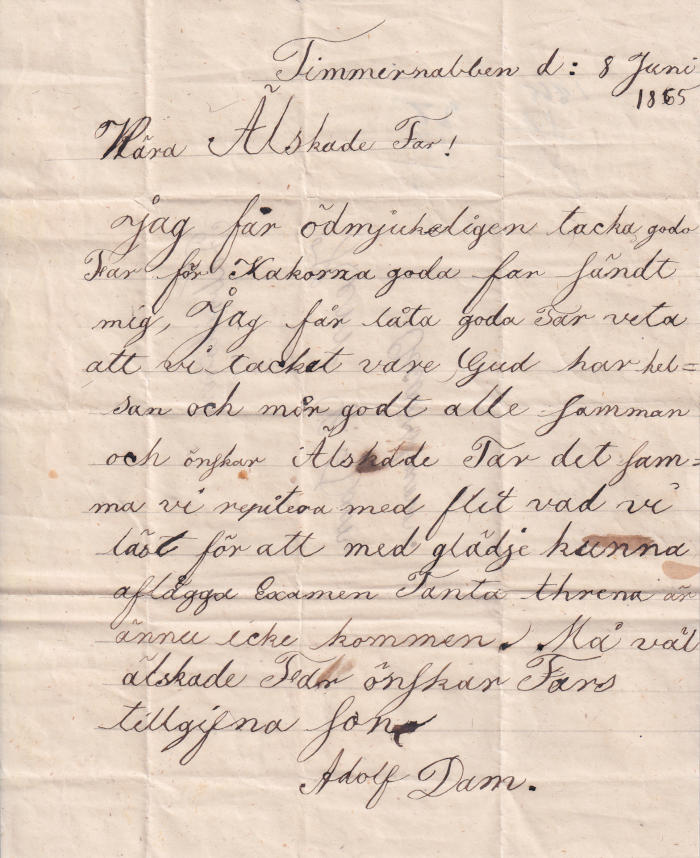 Timmernabben d: 8 Juni
1865
Kära Älskade Far!
Jag får ödmjukeligen tacka goda
Far för Kakorna goda far sändt
mig, Jag får låta goda Far veta
att vi tacket vare Gud har hel=
san och mår godt alle samman
och önskar Älskade Far det sam=
ma vi repitera med flit vad vi
läst för att med glädje kunna
aflägga Examen Tanta threna är
ännu icke kommen. Må väl
älskade Far önskar Fars
tillgifna son
Adolf Dam.